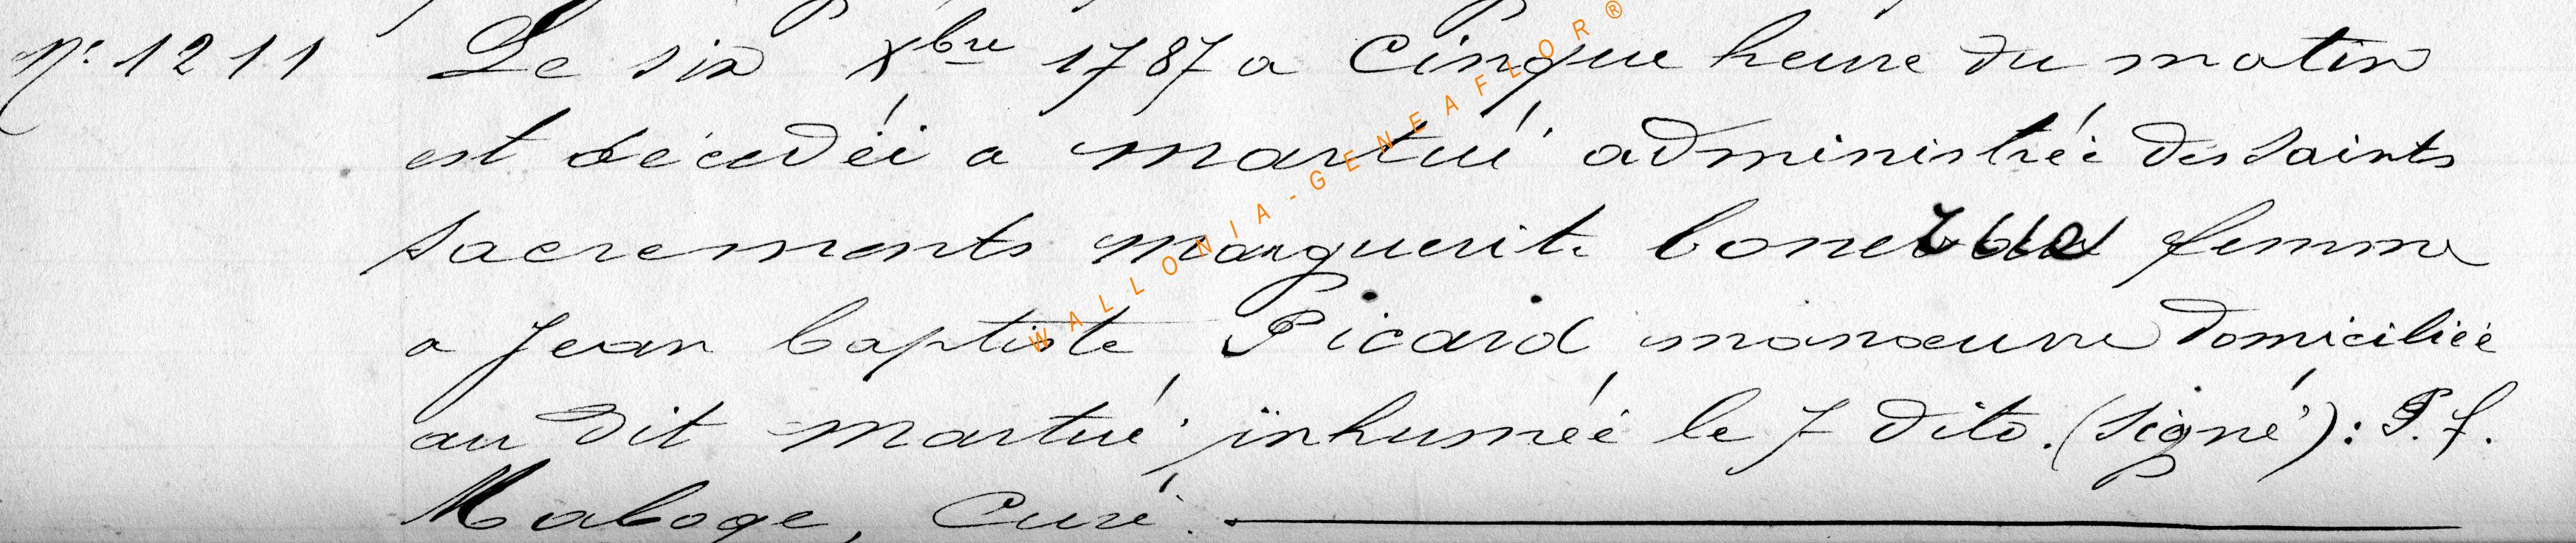 N.° 1211 Le six Xbre 1787 a Cinque heure du matin
est décedéé a martué administréé des saints
sacrements marguerite femme
a Jean baptiste Picard manœuvre domiciliéé
au dit martué inhuméé le 7 dito. (signé): P. f.
Maboge, Curé.
WALLONIA-GENEAFLOR®